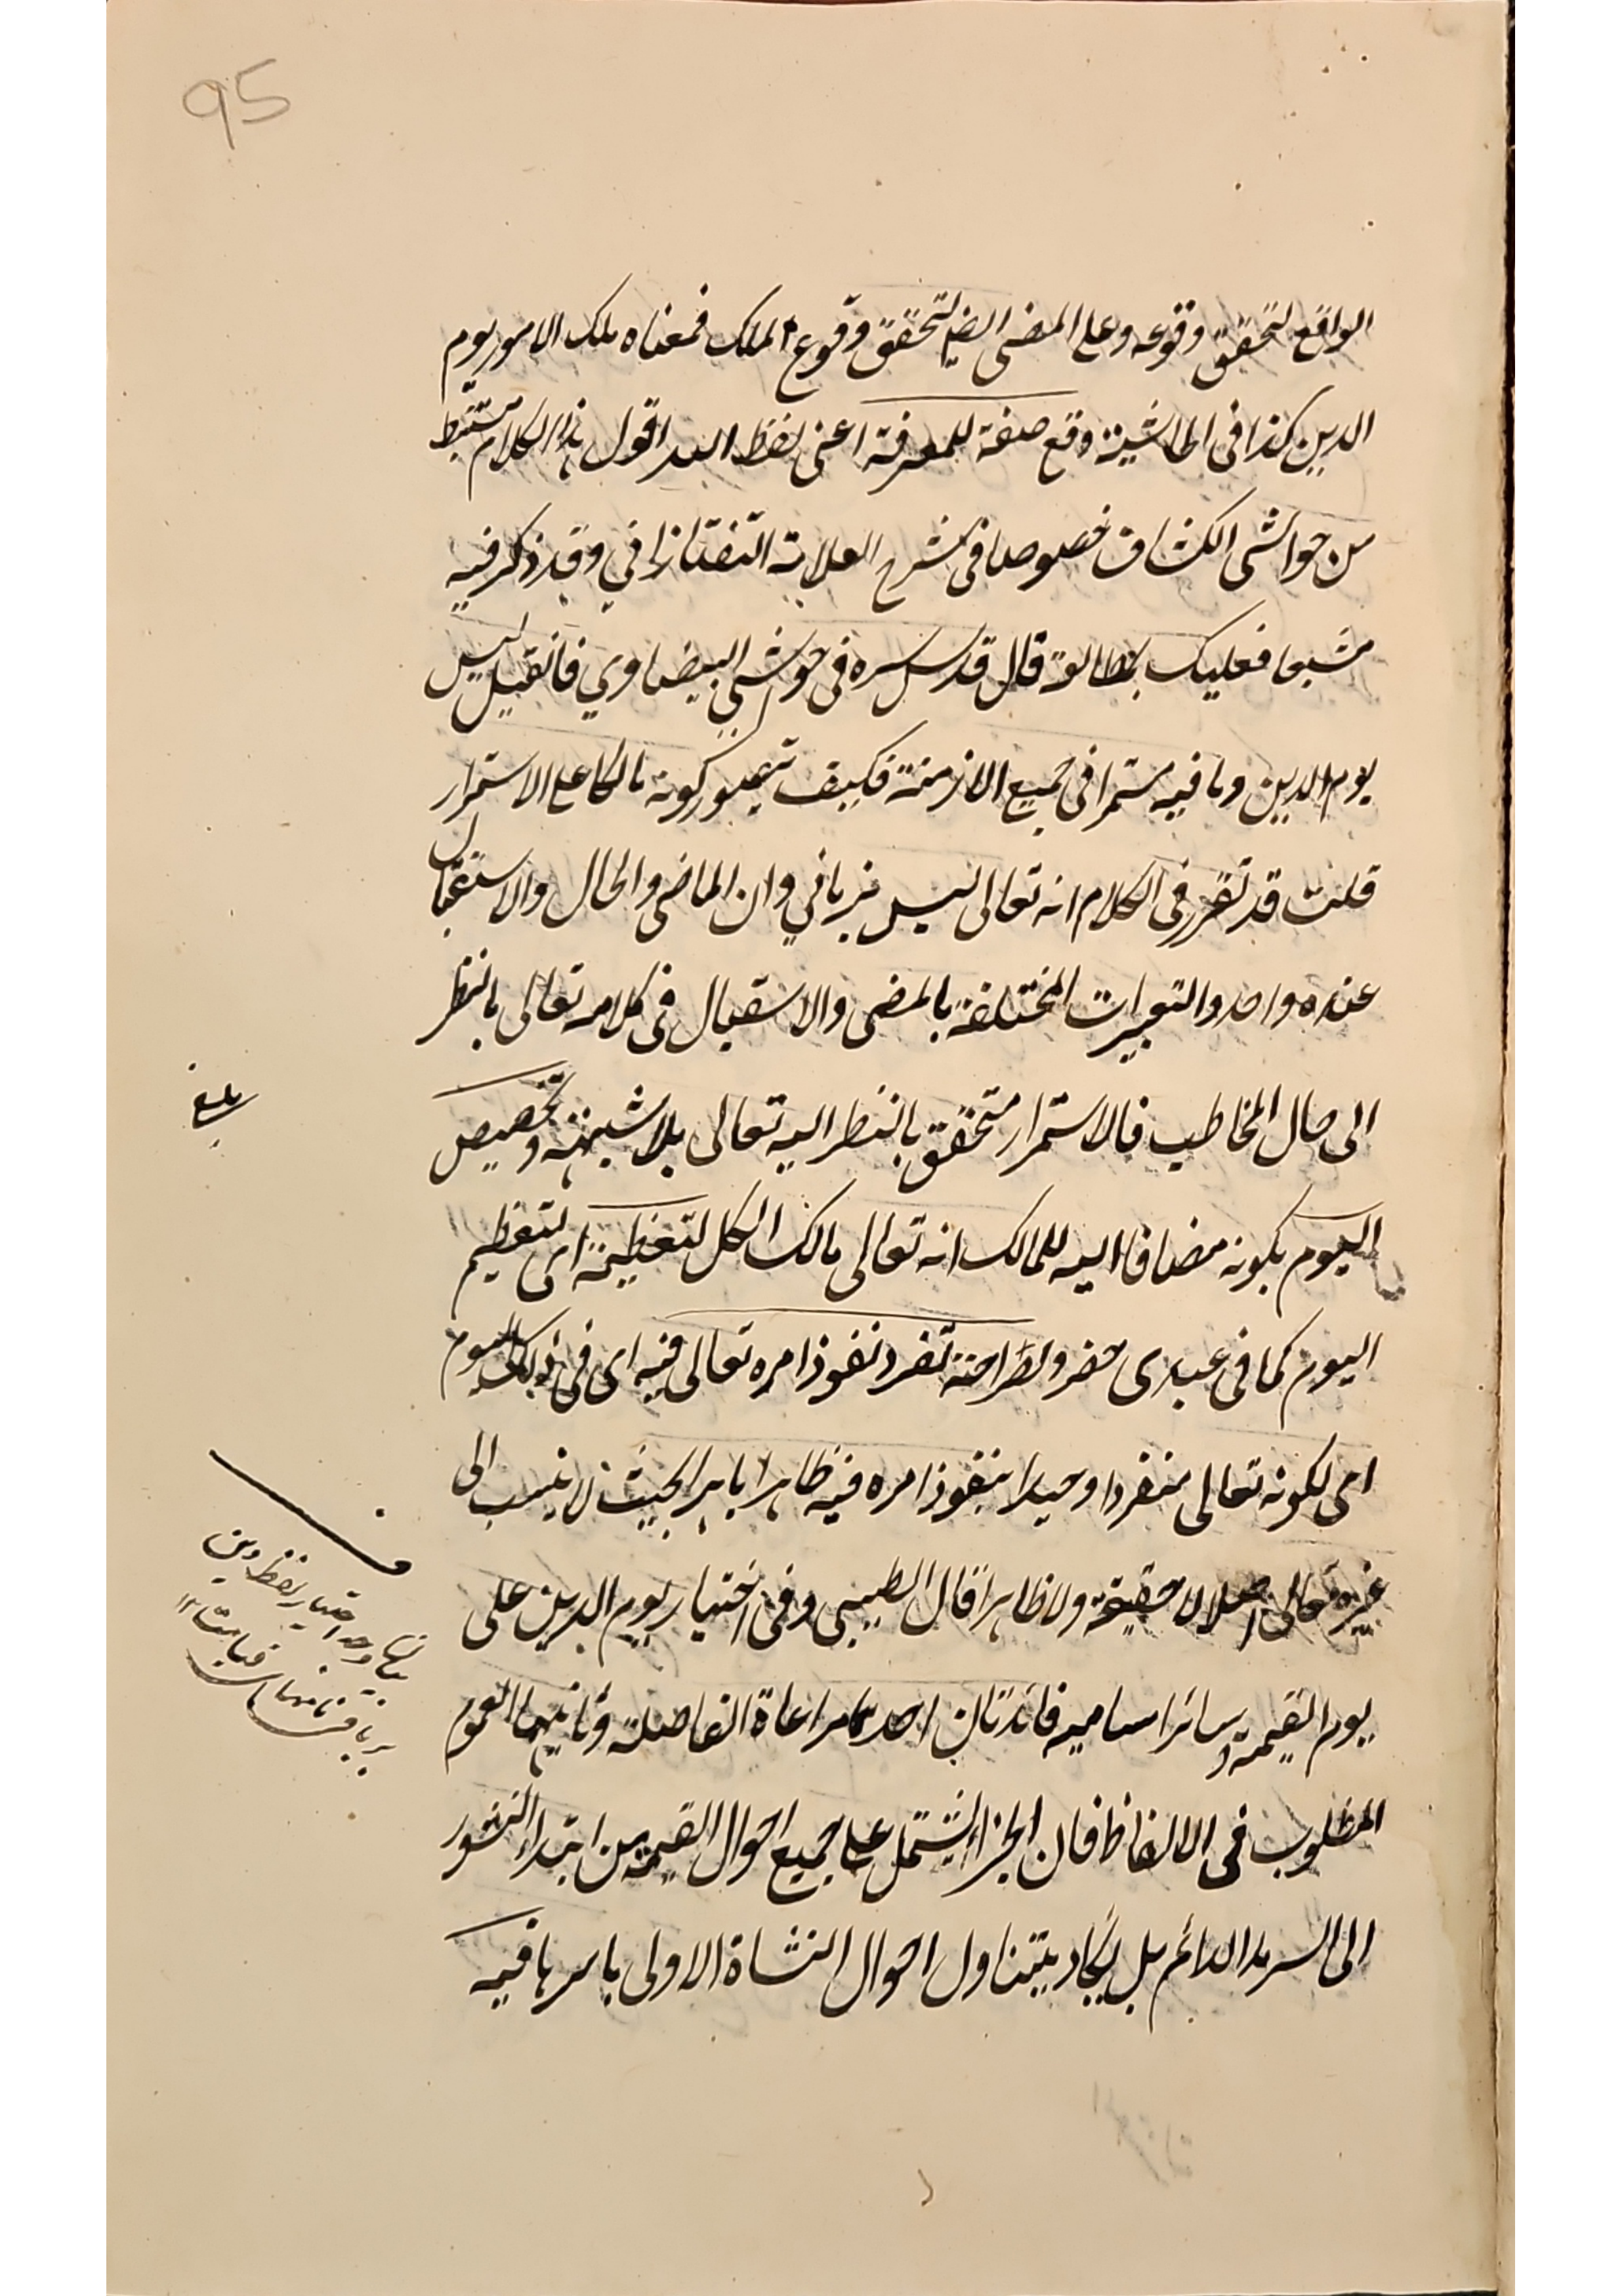 95
الواقع لتحقق وقوعه وعلى المضى ايضا لتحقق وقوع الملك فمعناه ملك الامور يوم
الدين كذا فى الحاشية وقع صفة للمعرفة اعنى لفظ الله اقول هذا الكلام مستنبط
من حواشى الكشاف خصوصا فى شرح العلامة التفتازاني وقد ذكر فيه
مشبعا فعليك بمطالعة قال قدس سره فى حواشي البيضاوي فان قيل ليس
يوم الدين وما فيه مستمرا فى جميع الازمنة فكيف يتصور كونه مالكا على الاستمرار
قلت قد تقرر فى الكلام انه تعالى ليس بزماني وان الماضى والحال والاستقبال
عنده واحد والتعبيرات المختلفة بالمضى والاستقبال فى كلامه تعالى بالنظر
الى حال المخاطب فالاستمرار متحقق بالنظر اليه تعالى بلا شبهة وتخصيص
اليوم بكونه مضافا اليه للمالك انه تعالى مالك الكل لتعظيمه اى لتعظيم
اليوم كما فى عبدى حضر ولصراحة تفرد نفوذ امره تعالى فيه اى فى ذلك اليوم
اى لكونه تعالى منفردا وحيدا بنفوذ امره فيه ظاهرا باهرا بحيث لا ينسب الى
غيره تعالى اصلا لا حقيقة ولا ظاهرا قال الطيبي وفى اختيار يوم الدين على
يوم القيمة وسائر اساميه فائدتان احدهما مراعاة الفاصلة وثانيهما العموم
المطلوب فى الالفاظ فان الجزاء يشتمل على جميع احوال القيمة من ابتداء النشور
الى السرمد الدائم بل يكاد يتناول احوال النشاة الاولى باسرها فيه
بلغ
اختيار لفظ دين